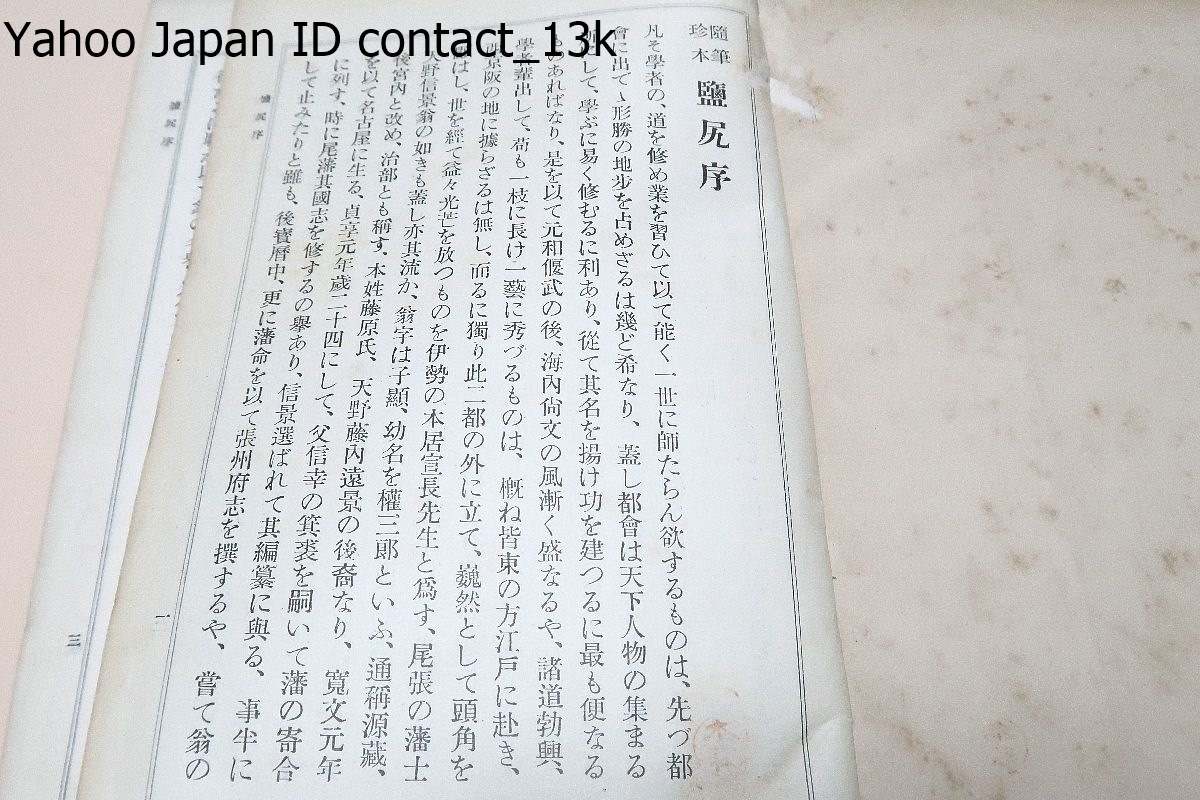 Yahoo Japan ID contact_13k
隨筆
珍本
鹽尻序
凡そ學者の、道を修め業を習ひて以て能く一世に師たらん欲するものは、先づ都
會に出でゝ形勝の地歩を占めざるは幾ど希なり、蓋し都會は天下人物の集まる
にして、學ぶに易く修むるに利あり、從て其名を揚げ功を建つるに最も便なる
のあればなり、是を以て元和偃武の後、海內尙文の風漸く盛なるや、諸道勃興、
學者輩出して、苟も一枝に長け一藝に秀づるものは、槪ね皆東の方江戶に赴き、
京阪の地に據らざるは無し、而るに獨り此二都の外に立て、巍然として頭角を
はし、世を經て益々光芒を放つものを伊勢の本居宣長先生と爲す、尾張の藩士
天野信景翁の如きも蓋し亦其流か、翁字は子顯、幼名を權三郞といふ、通稱源藏、
後宮內と改め、治部とも稱す、本姓藤原氏、天野藤內遠景の後裔なり、寬文元年
を以て名古屋に生る、貞享元年歲二十四にして、父信幸の箕裘を嗣いで藩の寄合
に列す、時に尾藩其國志を修するの擧あり、信景選ばれて其編纂に與る、事半に
して止みたりと雖も、後寶曆中、更に藩命を以て張州府志を撰するや、嘗て翁の
鹽尻序
一
鹽尻序
三